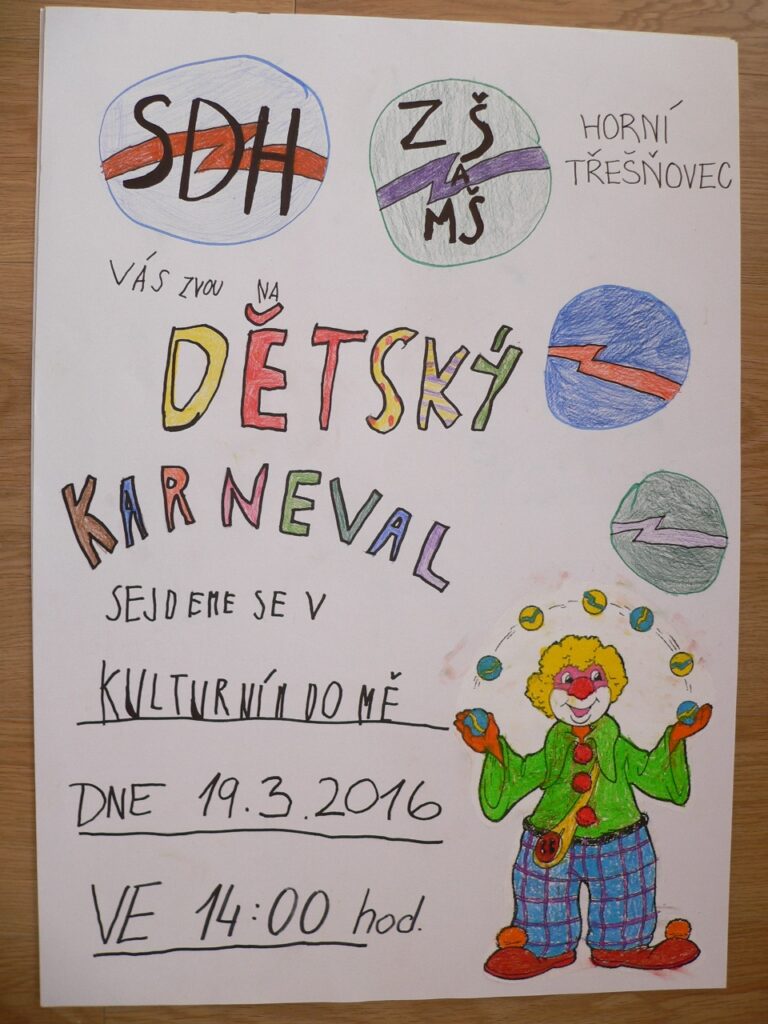 SDH
ZŠ
A
MŠ
HORNÍ
TŘEŠŇOVEC
VÁS ZVOU NA
DĚTSKÝ
KARNEVAL
SEJDEME SE V
KULTURNÍM DOMĚ
DNE 19.3.2016
VE 14:00 hod.